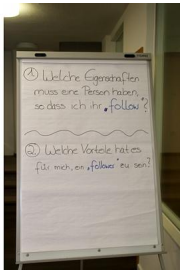 ① Welche Eigenschaften
muss eine Person haben,
so dass ich ihr „follow"?
② Welche Vorteile hat es
für mich, ein „follower" zu sein?